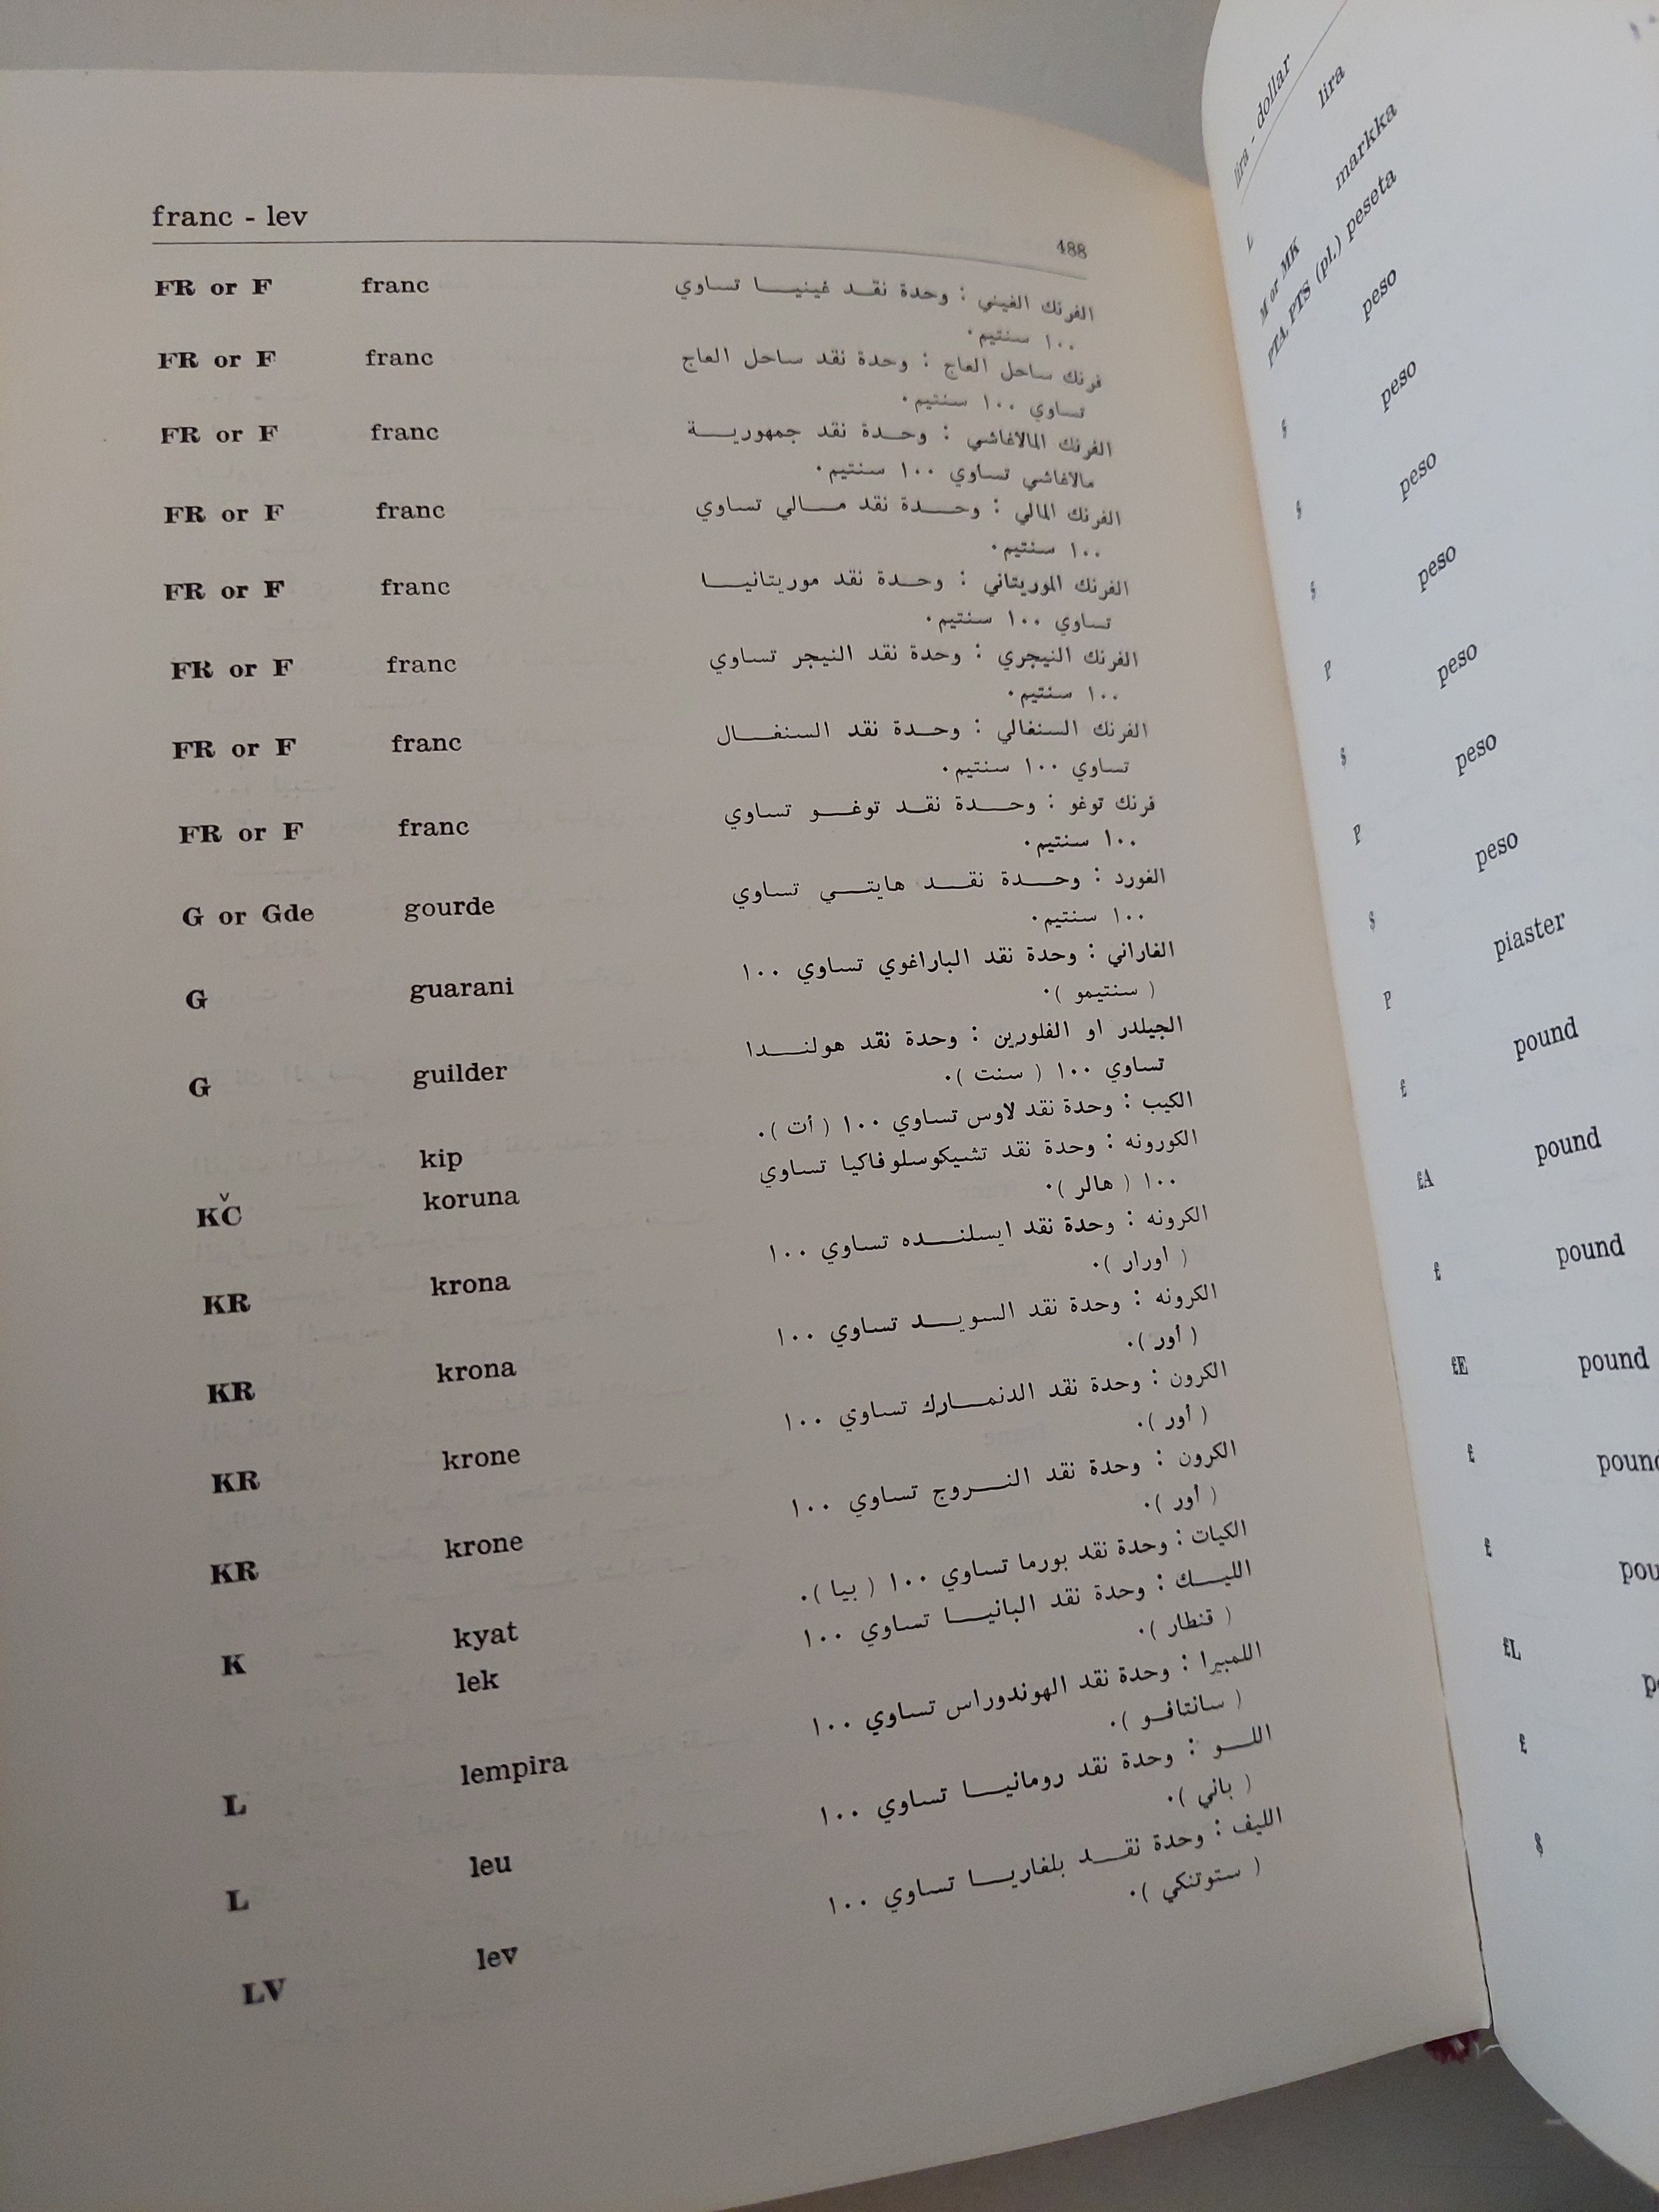 franc - lev
488
FR or F franc الفرنك الغيني : وحدة نقد غينيا تساوي
١٠٠ سنتيم.
FR or F franc فرنك ساحل العاج : وحدة نقد ساحل العاج
تساوي ١٠٠ سنتيم.
FR or F franc الفرنك المالاغاشي : وحدة نقد جمهورية
مالاغاشي تساوي ١٠٠ سنتيم.
FR or F franc الفرنك المالي : وحدة نقد مالي تساوي
١٠٠ سنتيم.
FR or F franc الفرنك الموريتاني : وحدة نقد موريتانيا
تساوي ١٠٠ سنتيم.
FR or F franc الفرنك النيجري : وحدة نقد النيجر تساوي
١٠٠ سنتيم.
FR or F franc الفرنك السنغالي : وحدة نقد السنغال
تساوي ١٠٠ سنتيم.
FR or F franc فرنك توغو : وحدة نقد توغو تساوي
١٠٠ سنتيم.
G or Gde gourde الغورد : وحدة نقد هايتي تساوي
١٠٠ سنتيم.
G guarani الغاراني : وحدة نقد الباراغوي تساوي ١٠٠
( سنتيمو ).
G guilder الجيلدر او الفلورين : وحدة نقد هولندا
تساوي ١٠٠ ( سنت ).
kip الكيب : وحدة نقد لاوس تساوي ١٠٠ ( أت ).
KČ koruna الكورونه : وحدة نقد تشيكوسلوفاكيا تساوي
١٠٠ ( هالر ).
KR krona الكرونه : وحدة نقد ايسلنده تساوي ١٠٠
( اورار ).
KR krona الكرونه : وحدة نقد السويد تساوي ١٠٠
( أور ).
KR krone الكرون : وحدة نقد الدنمارك تساوي ١٠٠
( أور ).
KR krone الكرون : وحدة نقد النروج تساوي ١٠٠
( أور ).
K kyat الكيات : وحدة نقد بورما تساوي ١٠٠ ( بيا ).
lek الليك : وحدة نقد البانيا تساوي ١٠٠
( قنطار ).
L lempira اللمبيرا : وحدة نقد الهوندوراس تساوي ١٠٠
( سانتافو ).
L leu اللو : وحدة نقد رومانيا تساوي ١٠٠
( باني ).
LV lev الليف : وحدة نقد بلغاريا تساوي ١٠٠
( ستوتنكي ).
lira - dollar
L lira
M or MK markka
PTA, PTS (pl.) peseta
peso
$ peso
$ peso
$ peso
P peso
$ peso
P peso
$ piaster
P pound
£ pound
£A pound
£ pound
£E pound
£
£
£L
£
$